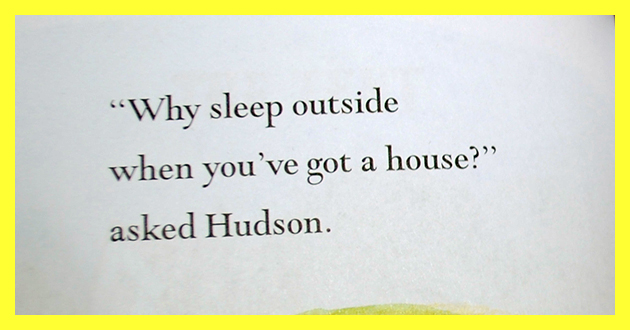 “Why sleep outside
when you’ve got a house?”
asked Hudson.